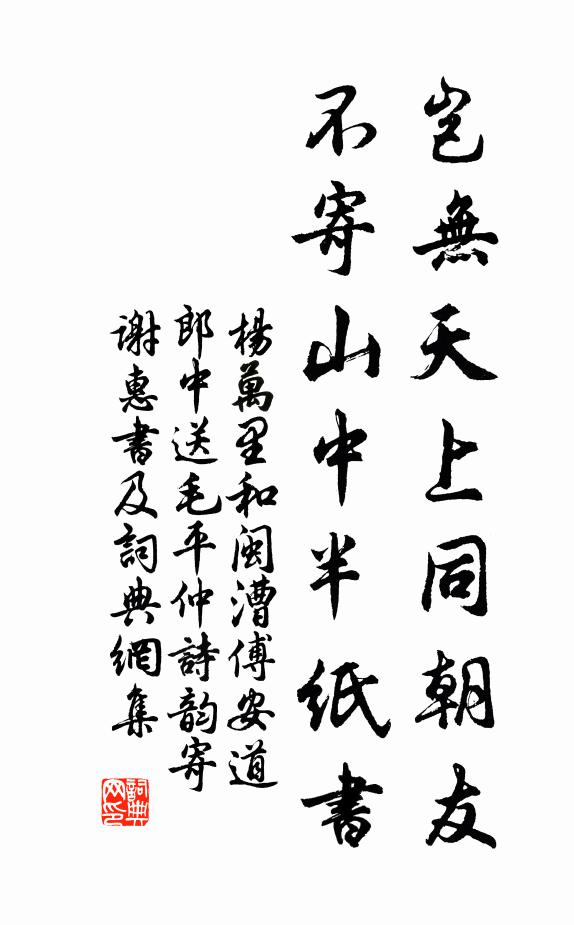 豈無天上同朝友
不寄山中半紙書
楊萬里和閩漕傅安道
郎中送毛平仲詩韵寄
謝惠書及詞典網集
詞典
网印